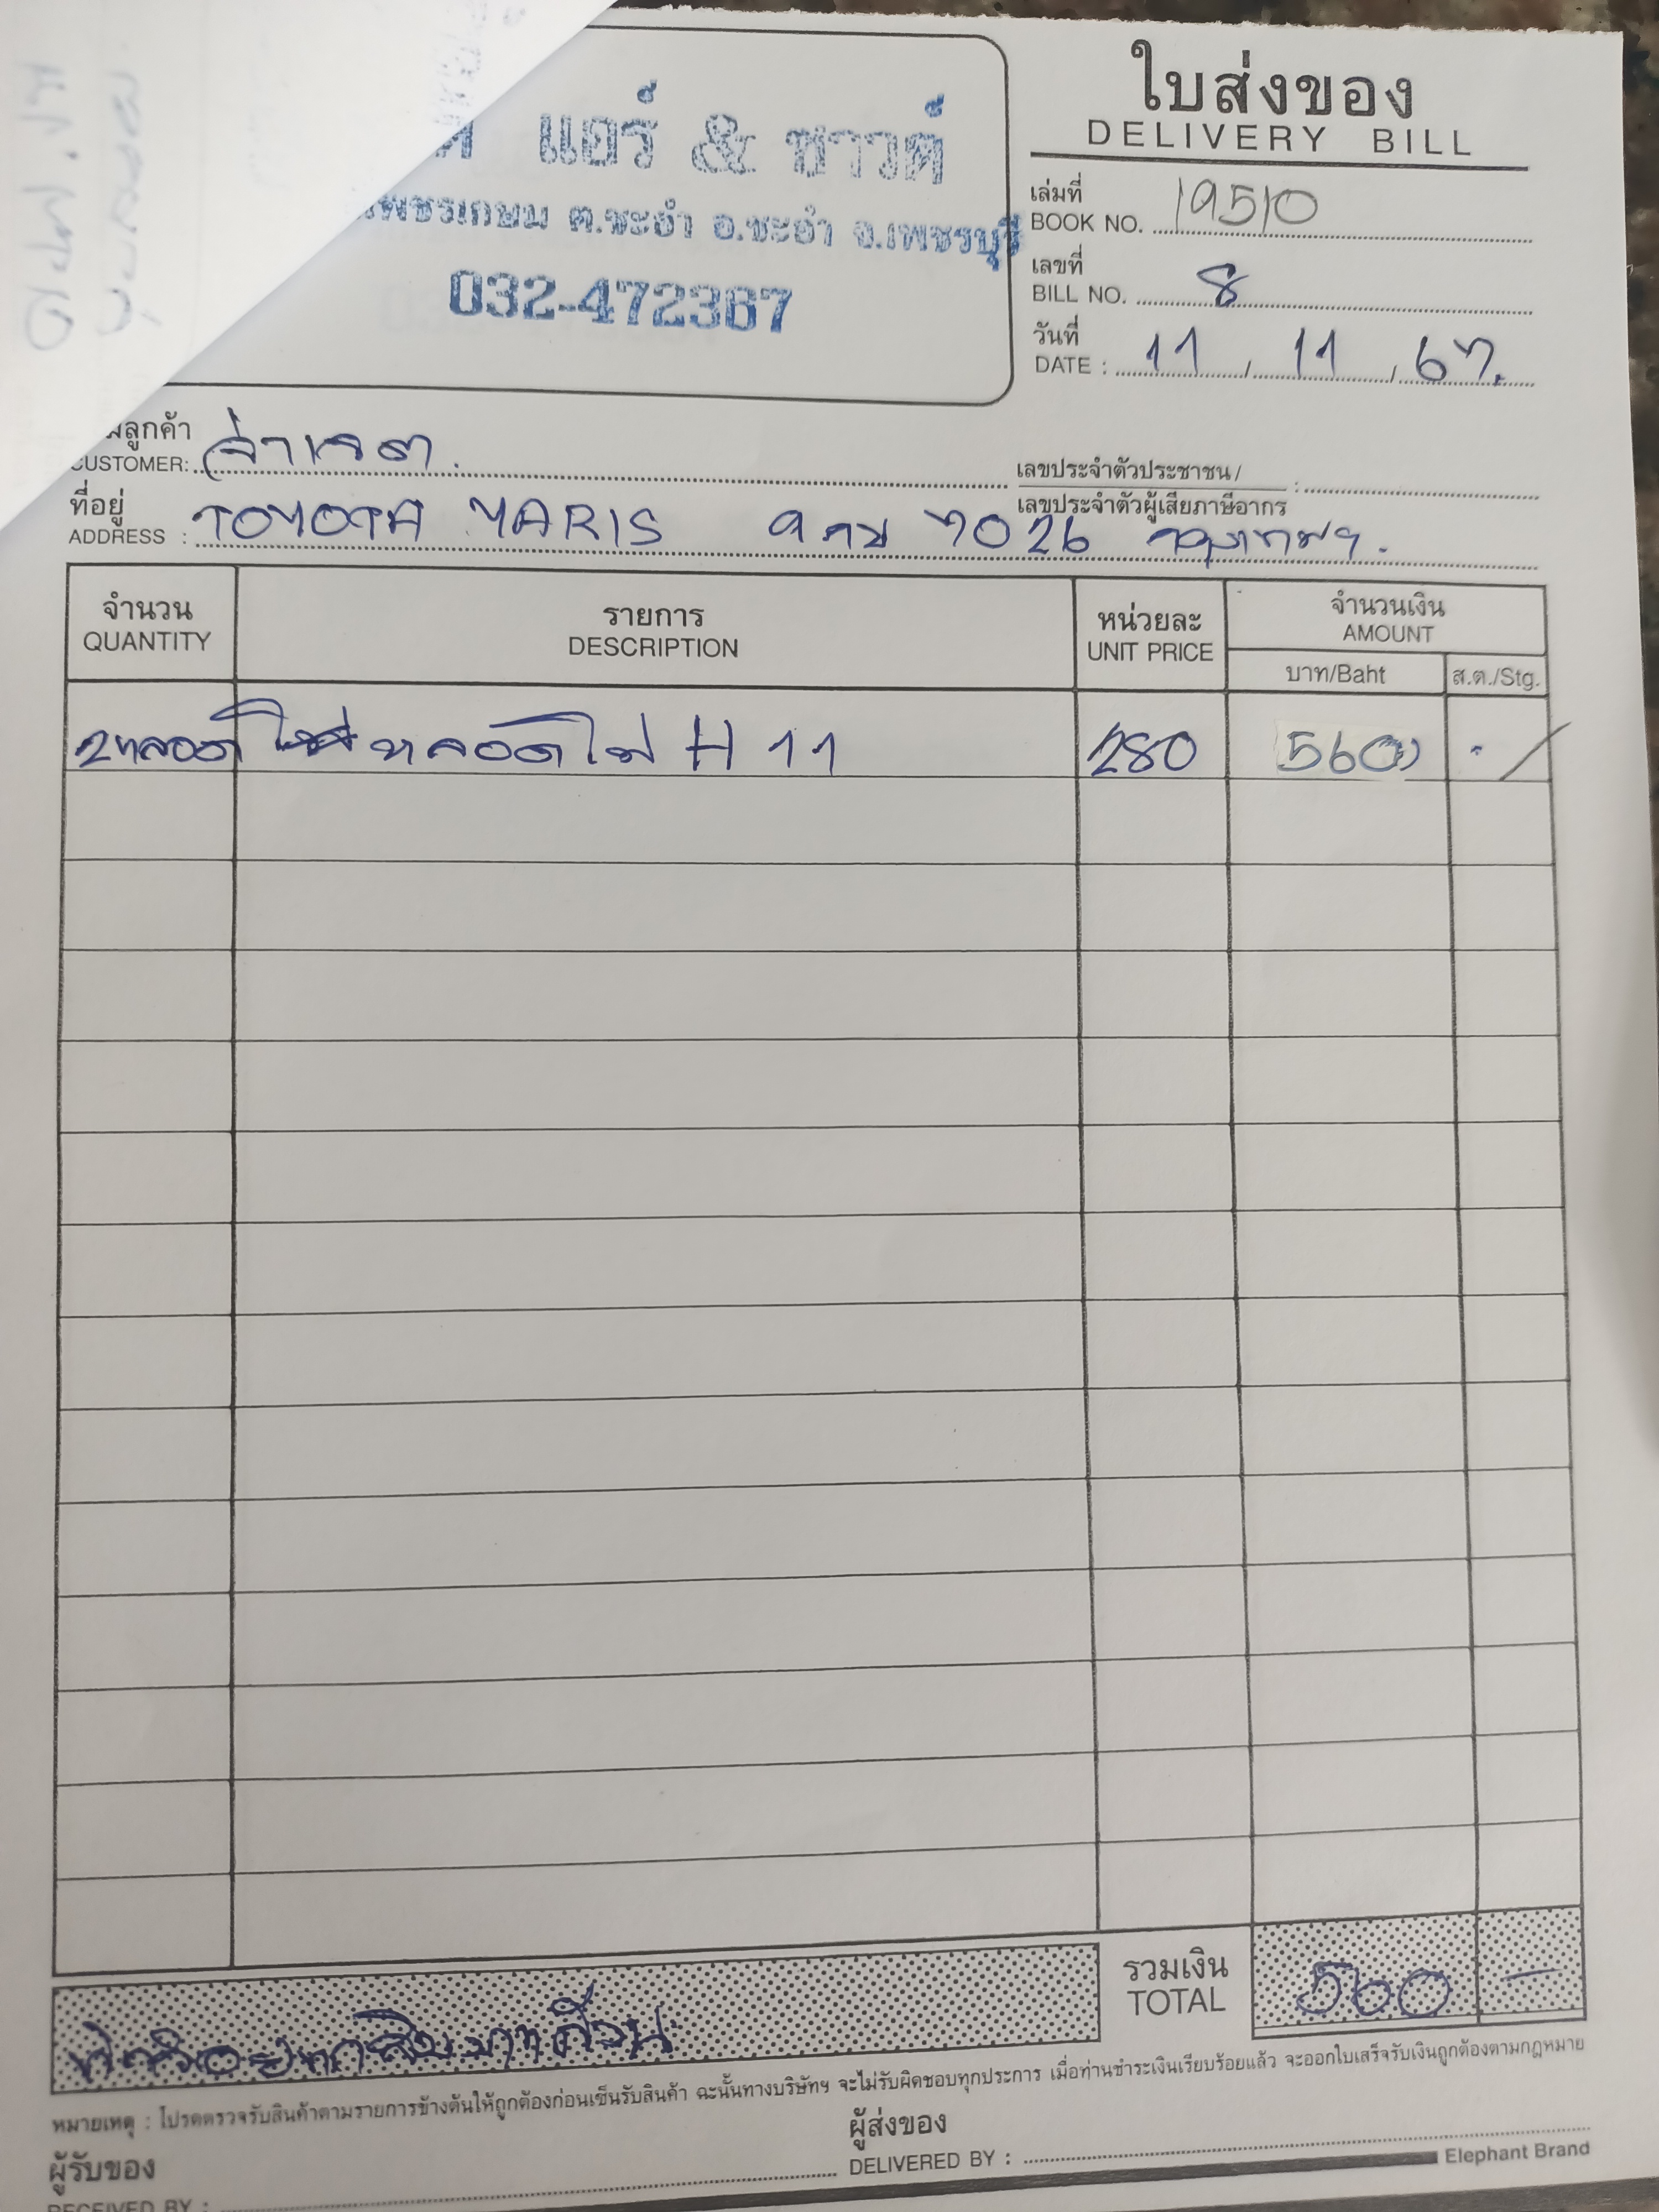 แอร์ & ซาวด์
เพชรเกษม ต.ชะอำ อ.ชะอำ จ.เพชรบุรี
032-472367
ใบส่งของ
DELIVERY BILL
เล่มที่
BOOK NO. 19510
เลขที่
BILL NO. 8
วันที่
DATE : 11 / 11 / 67.
ลูกค้า
CUSTOMER: จ่าเจต.
เลขประจำตัวประชาชน /
เลขประจำตัวผู้เสียภาษีอากร :
ที่อยู่
ADDRESS : TOYOTA YARIS 9กข 7026 กรุงเทพฯ.
จำนวน
QUANTITY
รายการ
DESCRIPTION
หน่วยละ
UNIT PRICE
จำนวนเงิน
AMOUNT
บาท/Baht
ส.ต./Stg.
2หลอด หลอดไฟ H 11 280 560
รวมเงิน
TOTAL
560 -
ห้าร้อยหกสิบบาทถ้วน
หมายเหตุ : โปรดตรวจรับสินค้าตามรายการข้างต้นให้ถูกต้องก่อนเซ็นรับสินค้า ฉะนั้นทางบริษัทฯ จะไม่รับผิดชอบทุกประการ เมื่อท่านชำระเงินเรียบร้อยแล้ว จะออกใบเสร็จรับเงินถูกต้องตามกฎหมาย
ผู้รับของ
RECEIVED BY :
ผู้ส่งของ
DELIVERED BY :
Elephant Brand